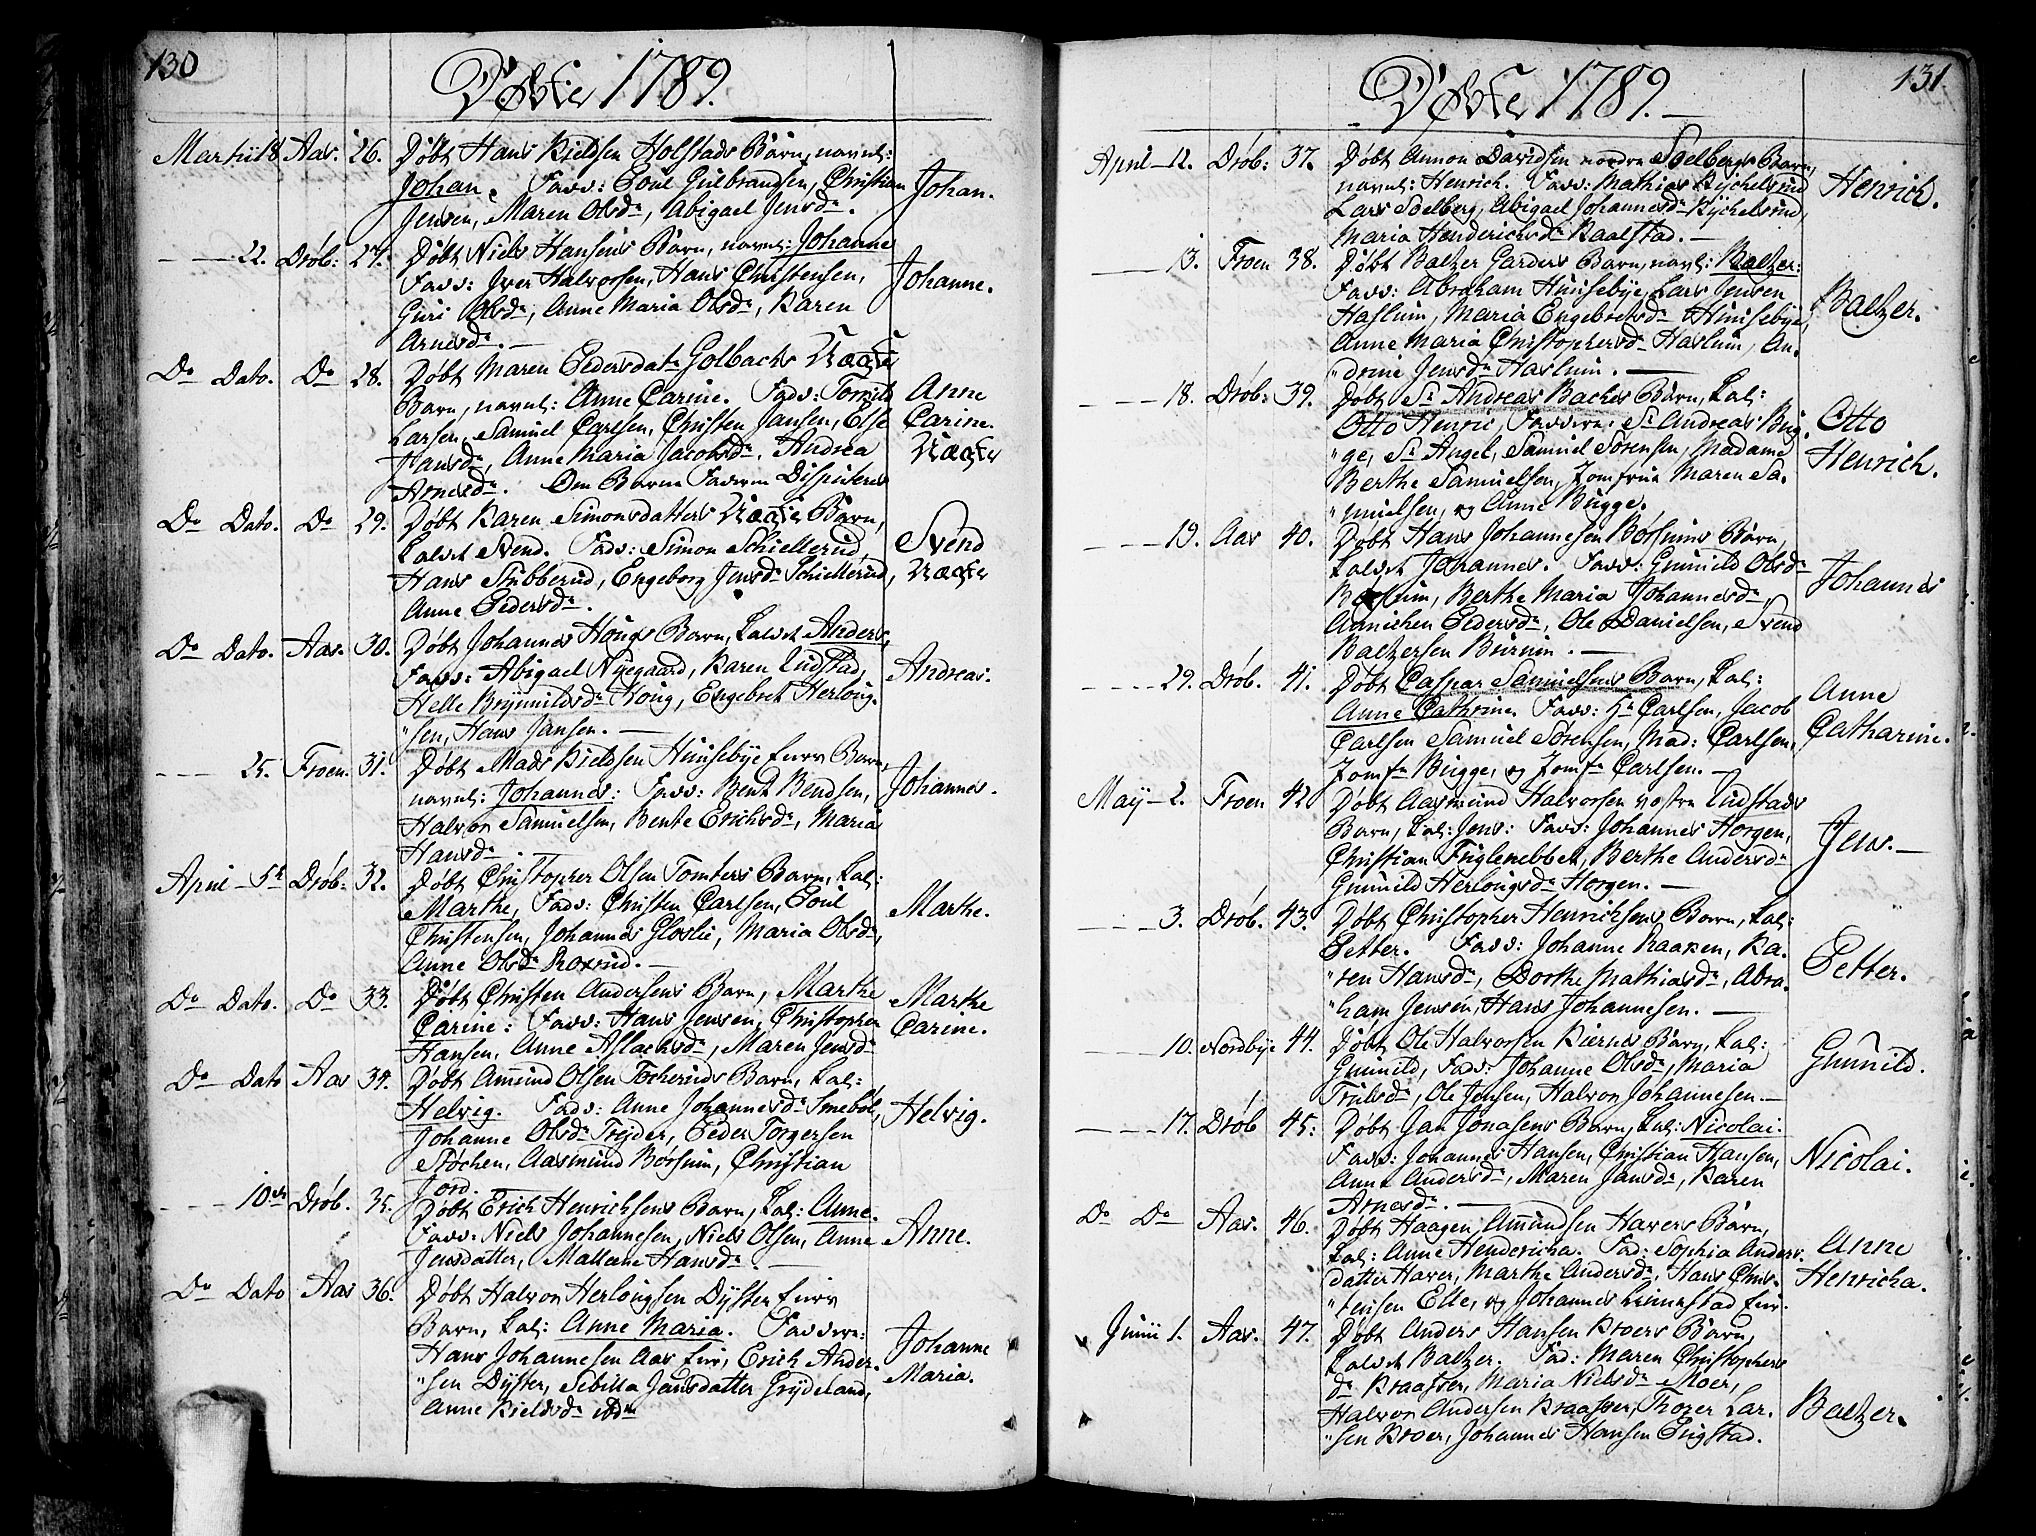 130
Døbte 1789.
Martii 18 Aas. 26. Døbt Hans Kieldsen Holstads Barn, navnl:
Johan. Fadd: Poul Gulbrandsen, Christian
Johan.
Jensen, Maren Olsdr, Abigael Jensdr.
22. Drøb: 27. Døbt Niels Hansens Barn, navnl: Johanne
Fadd: Iver Halvorsen, Hans Christensen,
Johanne.
Guri Olsdr, Anne Maria Olsdr, Karen
Arnesdr.
Do Dato. Do 28. Døbt Maren Pedersdatr Golbachs Uægte
Barn, navnl: Anne Carine. Fadd:
Anne
Larsen, Samuel Carlsen, Christen Jansen, Else
Carine.
Hansdr, Anne Maria Jacobsdr, Andrea
Uægte
Arnesdr. Om Barne Faderen Disputeres
Do Dato. Do 29. Døbt Karen Simonsdatters Uægte Barn,
Kaldet Svend. Fadd: Simon Schiellerud,
Svend
Hans Stubberud, Engeborg Jensdr Schiellerud,
Uægte
Anne Pedersdr.
Do Dato. Aas. 30. Døbt Johannes Hougs Barn, Kaldet Anders,
Fadd: Abigael Nyegaard, Karen Udstad,
Andreas.
Helle Brynnildsdr Houg, Engebret Herloug-
"sen, Hans Jansen.
25. Froen. 31. Døbt Mads Kieldsen Huusebye Barn,
navnl: Johannes: Fadd: Bent Bendsen,
Johannes.
Halvor Samuelsen, Bente Erichsdr, Maria
Hansdr.
April 5te Drøb: 32. Døbt Christopher Olsen Tomters Barn, Kal:
Marthe, Fadd: Christen Carlsen, Poul
Marthe.
Christensen, Johannes Gloslie, Maria Olsdr,
Anne Olsdr Roxrud.
Do Dato. Do 33. Døbt Christen Andersens Barn, Marthe
Marthe
Carine: Fadd: Hans Jensen, Christopher
Carine.
Hansen, Anne Aslachsdr, Maren Jensdr
Do Dato Aas 34. Døbt Amund Olsen Tocheruds Barn, Kal:
Helvig. Fadd: Anne Johannesdr Smebøl,
Helvig.
Johanne Olsdr Trejder, Peder Torgersen
Støchen, Aasmund Borsum, Christian
Jord.
10de Drøb. 35. Døbt Erich Henrichsens Barn, Kal: Anne.
Fadd: Niels Johannesen, Niels Olsen, Anne
Anne.
Jensdatter, Malleene Hansdr.
Do Dato Aas 36. Døbt Halvor Herlougsen Dyster
Barn, Kal: Anne Maria. Faddere:
Hans Johannesen Aas, Erich Ander-
Johanne
"sen Dyster, Sebilla Jansdatter Frydeland,
Maria.
Anne Kieldsdr ibdm
131
Døbte 1789.
April 12. Drøb: 37. Døbt Annon Davidsen nordre Soelbergs Barn,
navnl: Henrich. Fadd: Mathias Kychelsrud
Henrich.
Lars Solberg, Abigael Johannesdr Kychelsrud,
Maria Henderichsdr Kaalstad.
13. Froen 38. Døbt Baltzer Garders Barn, navnl: Baltzer:
Fadd: Abraham Huusebye, Lars Jensen
Haslum, Maria Engebretsdr Huusebye,
Baltzer.
Anne Maria Christophersdr Haslum, An-
"drine Jensdr Haslum.
18. Drøb: 39. Døbt Sr Andreas Baches Barn, Kal:
Otto Henric, Faddere: Sr Andreas Bug-
Otto
"ge, Sr Angel, Samuel Sørensen, Madame
Henrich.
Berthe Samuelsen, Jomfrue Maren Sa-
"muelsen, og Anne Bugge.
19. Aas 40. Døbt Hans Johannesen Borsums Barn,
Kaldet Johannes. Fadd: Gunnild Olsdr
Johannes
Borsum, Berthe Maria Johannesdr,
Annichen Pedersdr, Ole Danielsen, Svend
Baltzersen Burum.
29. Drøb. 41. Døbt Caspar Samuelsens Barn, Kal:
Anne Cathrine. Fadd: Hr Carlsen, Jacob
Anne
Carlsen Samuel Sørensen, Mad: Carlsen,
Catharine.
Jomfr Bugge, og Jomfr Carlsen.
Maÿ 2. Froen 42 Døbt Aasmund Halvorsen vestre Udstads
Barn, Kal: Jens: Fadd: Johannes Horgen,
Jens.
Christian Fuglenebbet, Berthe Andersdr
Gunnild Herlougsdr Horgen.
3. Drøb. 43. Døbt Christopher Henrichsens Barn, Kal:
Petter. Fadd: Johanne Kraaxen, Ka-
Petter.
"ren Hansdr, Dorthe Mathiasdr, Abra-
"ham Jensen, Hans Johannesen.
10. Nordbye 44. Døbt Ole Halvorsen Kiernes Barn, Kal:
Gunnild, Fadd: Johanne Olsdr, Maria
Gunnild.
Trulsdr, Ole Jensen, Halvor Johannesen.
17. Drøb 45: Døbt Jan Jonasens Barn, Kal: Nicolai.
Fadd: Johannes Hansen, Christian Hansen,
Nicolai.
Anne Andersdr, Maren Jansdr, Karen
Arnesdr.
Do Do Aas. 46. Døbt Haagen Amundsen Havers Barn,
Kal: Anne Hendericha. Fad: Sophia Anders-
Anne
datter Haver, Marthe Andersdr, Hans Chris-
Henricha.
"tensen Elle, og Johannes
Junii 1. Aas. 47. Døbt Anders Hansen Kroers Barn,
Kaldet Baltzer. Fad: Maren Christophers
dr Kraasser, Maria Nielsdr Moer,
Halvor Andersen Kraasser, Thorer Lar-
Baltzer.
"sen Kroer, Johannes Hansen Eugstad.